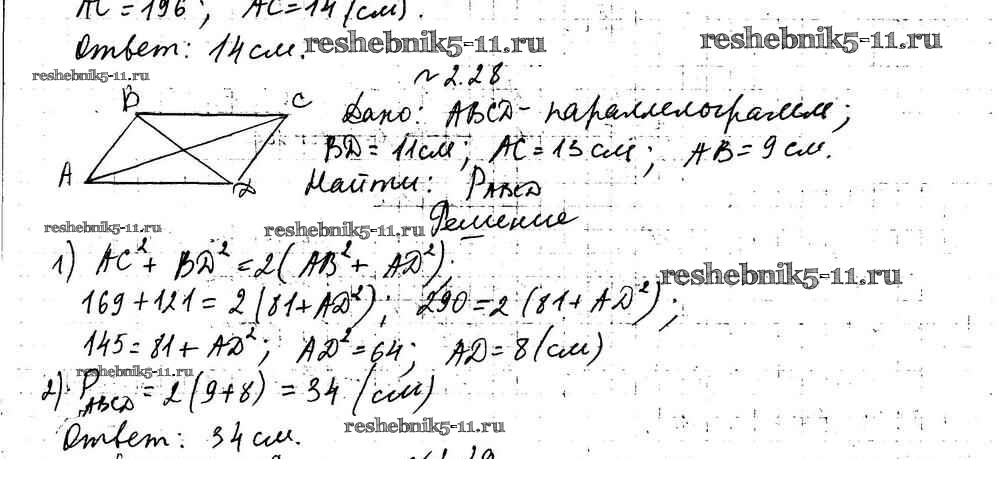 AC²=196; AC=14 (см).
Ответ: 14 см.
reshebnik5-11.ru
reshebnik5-11.ru
reshebnik5-11.ru
№2.28
B
C
A
D
Дано: ABCD - параллелограмм;
BD=11см; AC=13 см; AB=9 см.
Найти: P ABCD
Решение
reshebnik5-11.ru
reshebnik5-11.ru
1) AC²+ BD²=2(AB²+ AD²);
reshebnik5-11.ru
169+121=2(81+AD²); 290=2(81+AD²);
145=81+AD²; AD²=64; AD=8(см)
reshebnik5-11.ru
2) P ABCD =2(9+8)=34 (см)
Ответ: 34 см.
reshebnik5-11.ru